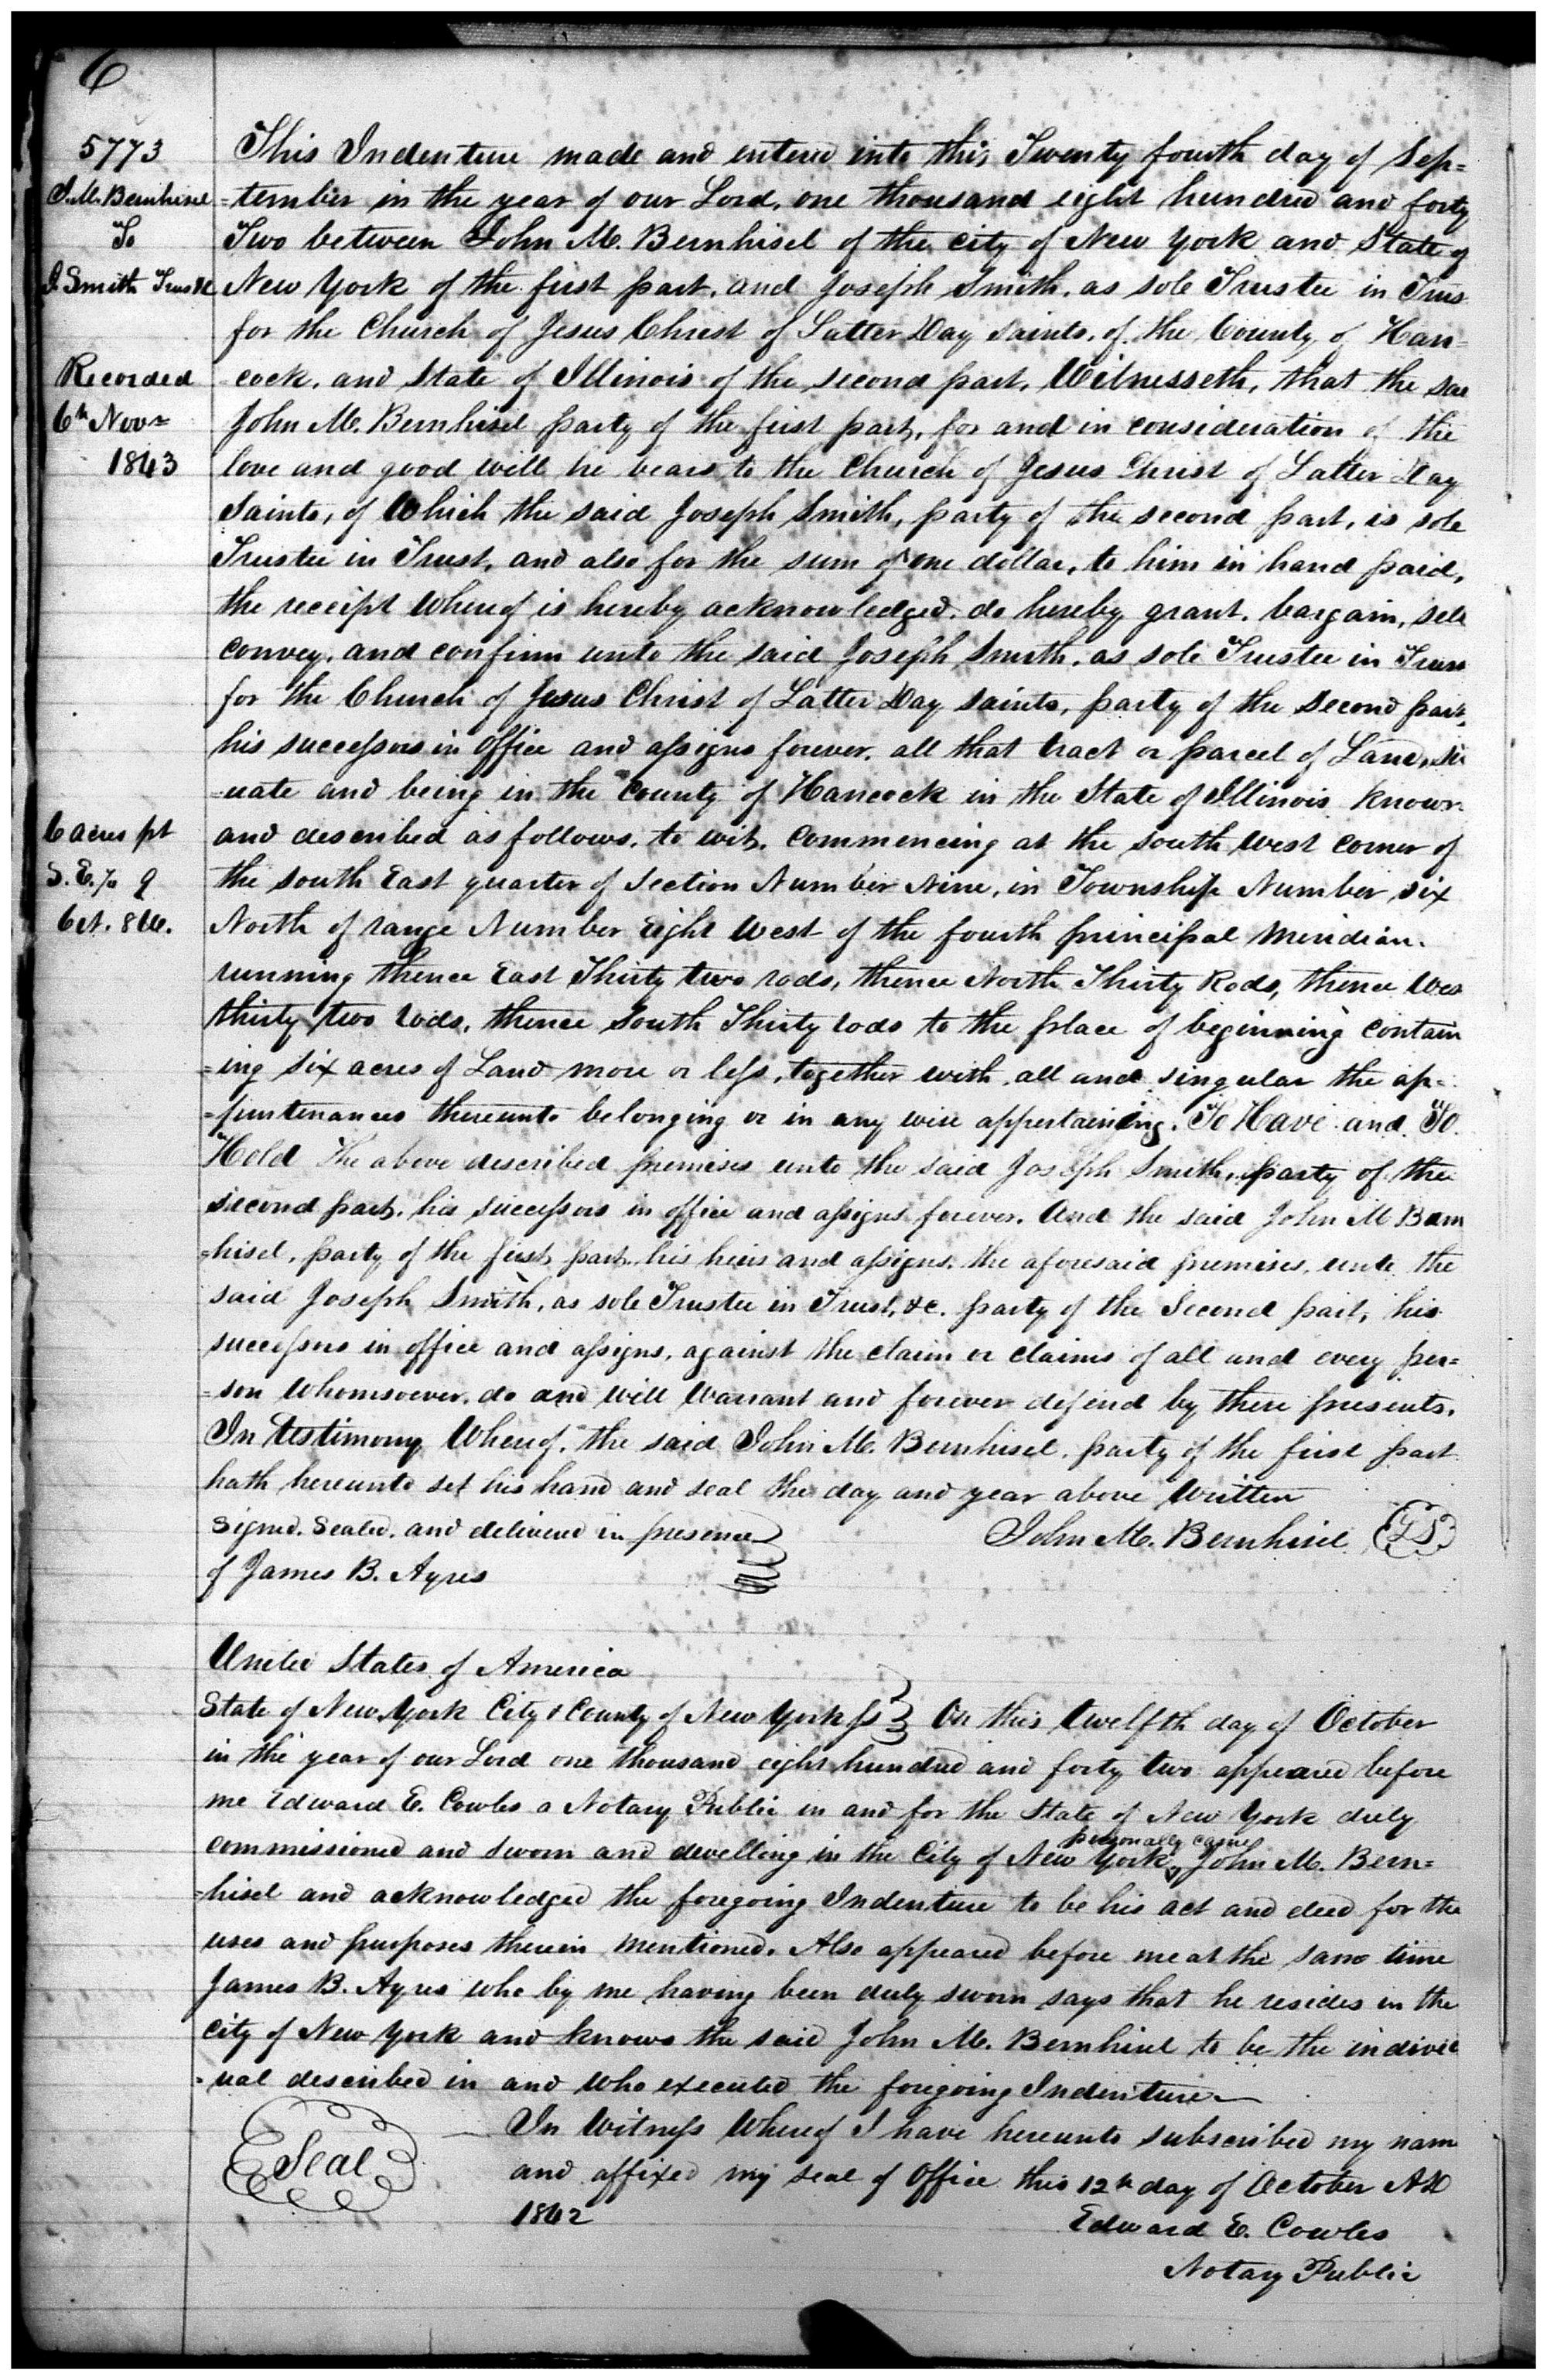 6
5773
J. M. Bernhisel
To
J. Smith Trustee
Recorded
6th Novr
1843
6 acres pt
S. E. ¼ 9
6 N. 8 W.
This Indenture made and entered into this Twenty fourth day of Sep=
=tember in the year of our Lord, one thousand eight hundred and forty
Two between John M. Bernhisel of the city of New York and State of
New York of the first part, and Joseph Smith, as sole Trustee in Trus
for the Church of Jesus Christ of Latter Day Saints, of the County of Han=
cock, and State of Illinois of the second part, Witnesseth, that the sai
John M. Bernhisel party of the first part, for and in consideration of the
love and good will he bears to the Church of Jesus Christ of Latter Day
Saints, of Which the said Joseph Smith, party of the second part, is sole
Trustee in Trust, and also for the sum of one dollar, to him in hand paid,
the receipt Whereof is hereby acknowledged. do hereby grant. bargain, sell
convey, and confirm unto the said Joseph Smith, as sole Trustee in Trus
for the Church of Jesus Christ of Latter Day Saints, party of the Second part,
his successors in Office and assigns forever. all that tract or parcel of Land, sit
=uate and being in the County of Hancock in the State of Illinois Known
and described as follows, to wit. Commencing at the South West Corner of
the South East quarter of Section Number Nine, in Township Number Six
North of range Number Eight West of the fourth principal Meridian.
running thence East Thirty two rods, thence North Thirty Rods, thence Wes
thirty two rods, thence South Thirty rods to the place of beginning Contain
=ing six acres of Land more or less, together with all and singular the ap=
=purtenances thereunto belonging or in any wise appertaining. To Have and To
Hold The above described premises unto the said Joseph Smith, party of the
second part, his successors in office and assigns forever. And the said John M Bern
=hisel, party of the first part, his heirs and assigns, the aforesaid premises, unto the
said Joseph Smith, as sole Trustee in Trust, &c. party of the Second part, his
successors in office and assigns, against the claim or claims of all and every per=
=son Whomsoever. do and will Warrant and forever defend by these presents.
In testimony Whereof, the said John M. Bernhisel, party of the first part
hath hereunto set his hand and seal the day and year above Written
Signed. Sealed. and delivered in presence
of James B. Ayres
John M. Bernhisel LS
United States of America
State of New York City & County of New York ss On this twelfth day of October
in the year of our Lord one thousand eight hundred and forty two appeared before
me Edward E. Cowles a Notary Public in and for the State of New York duly
commissioned and sworn and dwelling in the City of New York, personally came John M. Bern=
=hisel and acknowledged the foregoing Indenture to be his act and deed for the
uses and purposes therein mentioned. Also appeared before me at the same time
James B. Ayres who by me having been duly sworn says that he resides in the
City of New York and knows the said John M. Bernhisel to be the individ
=ual described in and who executed the foregoing Indenture
In Witness Whereof I have hereunto subscribed my name
and affixed my seal of Office this 12th day of October AD
1842
Seal
Edward E. Cowles
Notary Public